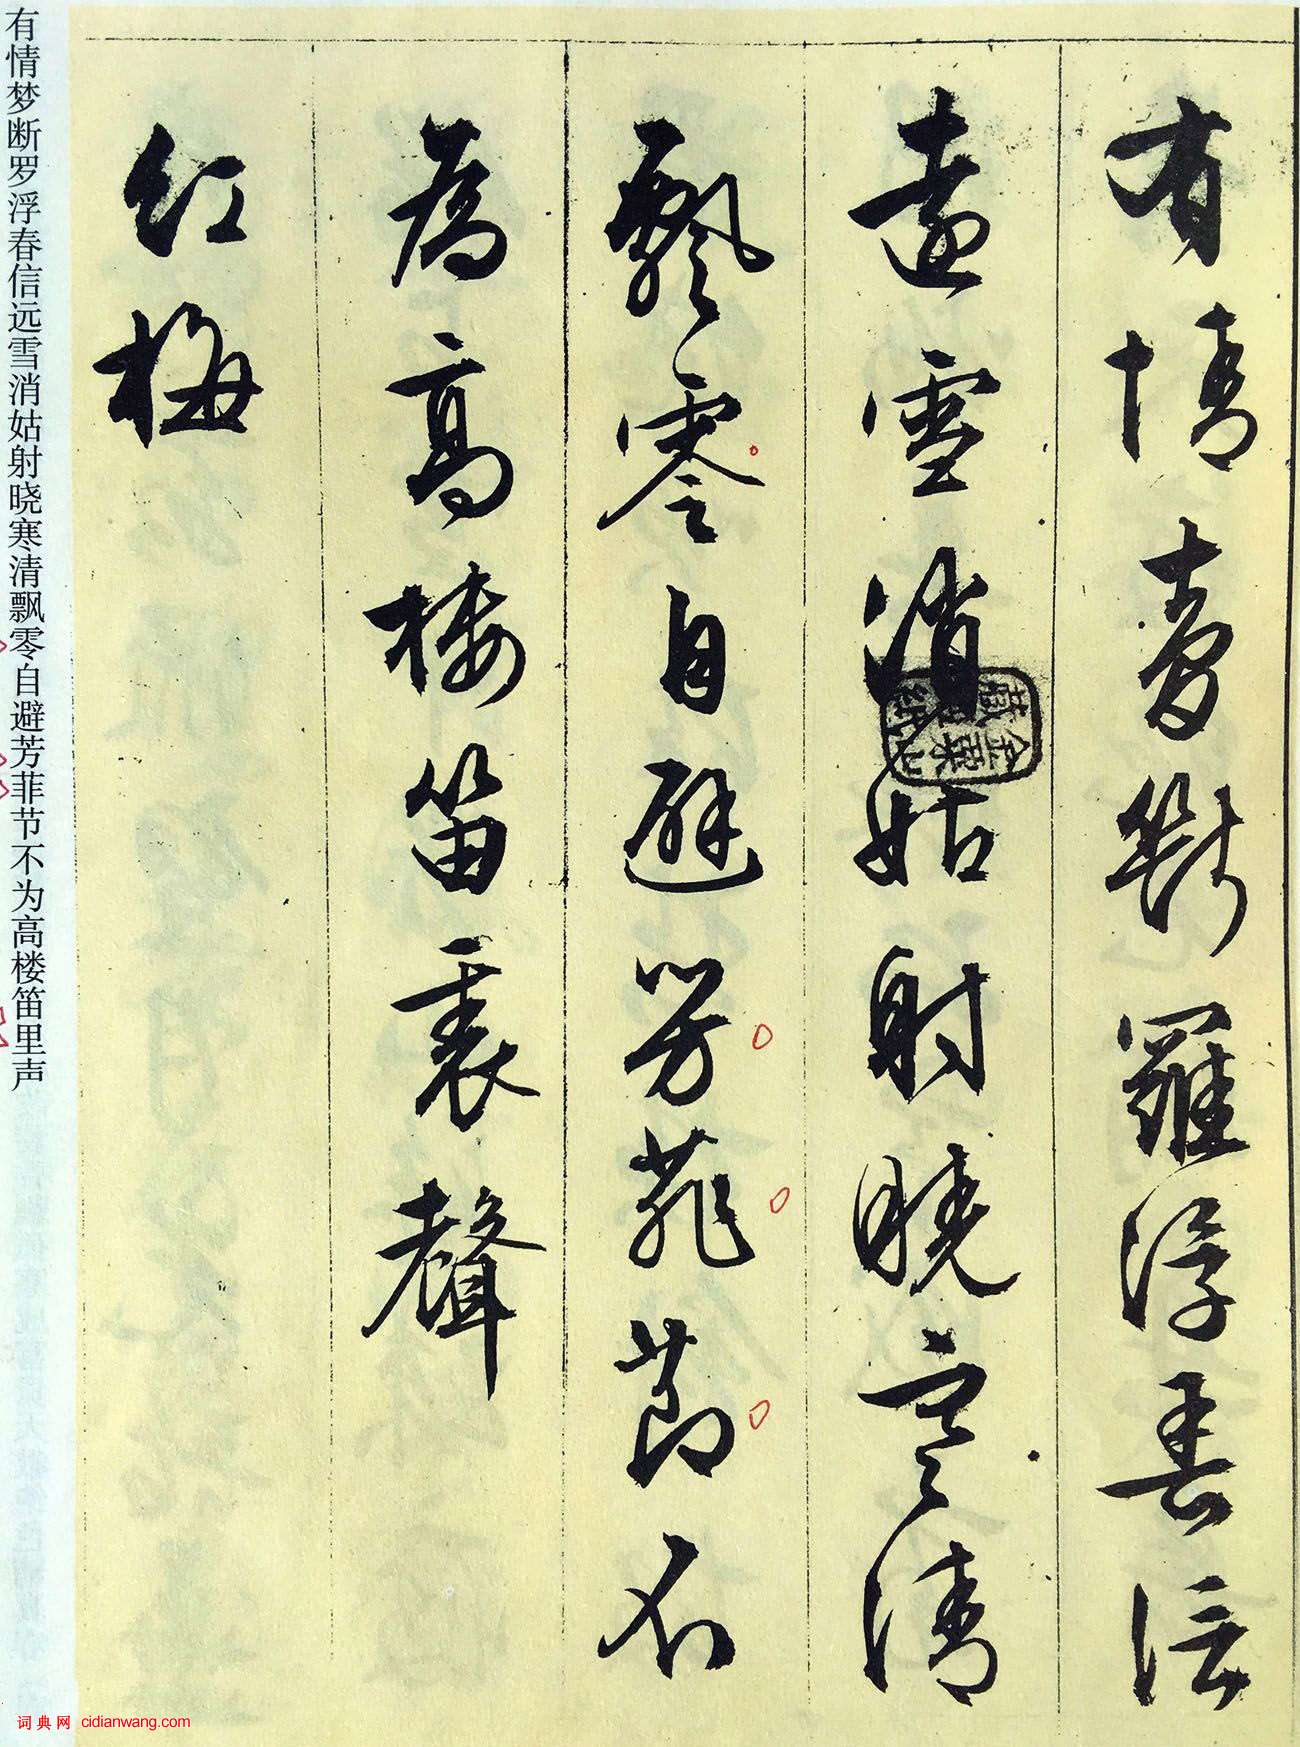 有情夢斷羅浮春信
遠雪消姑射曉寒清
飄零自避芳菲節不
為高樓笛裏聲
紅梅
有情梦断罗浮春信远雪消姑射晓寒清飘零自避芳菲节不为高楼笛里声
词典网 cidianwang.com